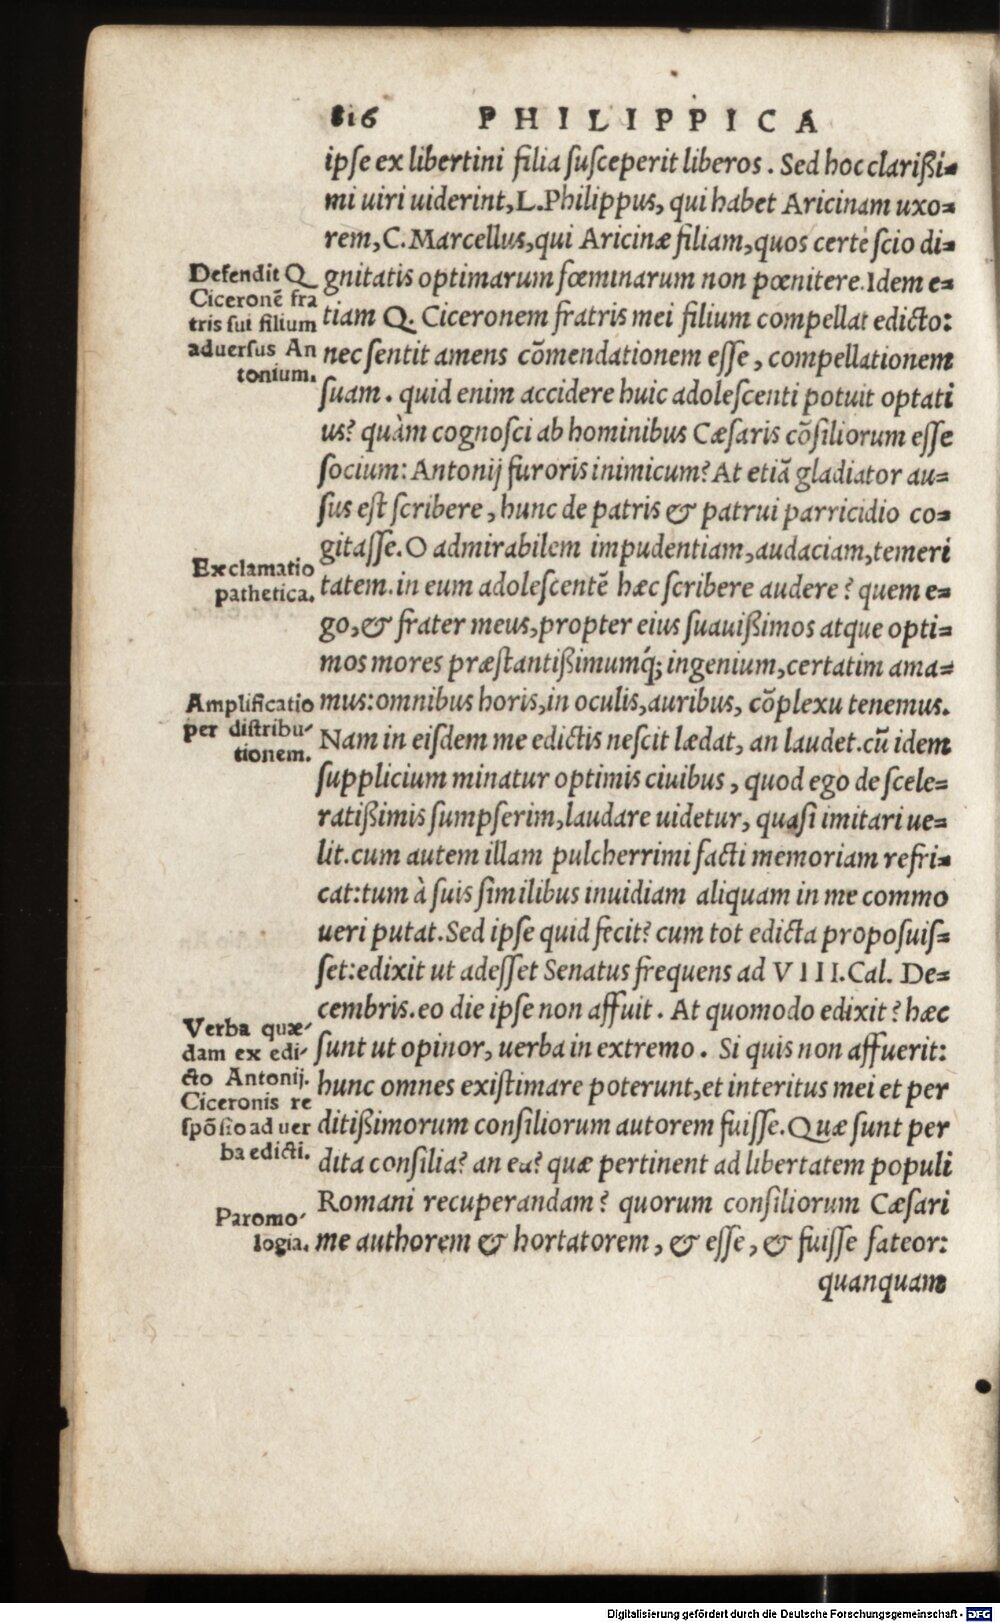 816 PHILIPPICA
ipse ex libertini filia susceperit liberos. Sed hoc clarißi-
mi uiri uiderint, L. Philippus, qui habet Aricinam uxo-
rem, C. Marcellus, qui Aricinæ filiam, quos certè scio di-
gnitatis optimarum fœminarum non pœnitere. Idem e-
tiam Q. Ciceronem fratris mei filium compellat edicto:
nec sentit amens cõmendationem esse, compellationem
suam. quid enim accidere huic adolescenti potuit optati
us? quàm cognosci ab hominibus Cæsaris cõsiliorum esse
socium: Antonij furoris inimicum? At etiã gladiator au-
sus est scribere, hunc de patris & patrui parricidio co-
gitasse. O admirabilem impudentiam, audaciam, temeri
tatem. in eum adolescentẽ hæc scribere audere? quem e-
go, & frater meus, propter eius suauißimos atque opti-
mos mores præstantißimumq́; ingenium, certatim ama-
mus: omnibus horis, in oculis, auribus, cõplexu tenemus.
Nam in eisdem me edictis nescit lædat, an laudet. cũ idem
supplicium minatur optimis ciuibus, quod ego de scele-
ratißimis sumpserim, laudare uidetur, quasi imitari ue-
lit. cum autem illam pulcherrimi facti memoriam refri-
cat: tum à suis similibus inuidiam aliquam in me commo
ueri putat. Sed ipse quid fecit? cum tot edicta proposuis-
set: edixit ut adesset Senatus frequens ad VIII. Cal. De-
cembris. eo die ipse non affuit. At quomodo edixit? hæc
sunt ut opinor, uerba in extremo. Si quis non affuerit:
hunc omnes existimare poterunt, et interitus mei et per
ditißimorum consiliorum autorem fuisse. Quæ sunt per
dita consilia? an ea? quæ pertinent ad libertatem populi
Romani recuperandam? quorum consiliorum Cæsari
me authorem & hortatorem, & esse, & fuisse fateor:
quanquam
Defendit Q
Ciceronẽ fra
tris sui filium
aduersus An
tonium.
Exclamatio
pathetica.
Amplificatio
per distribu-
tionem.
Verba quæ-
dam ex edi-
cto Antonij.
Ciceronis re
spõsio ad uer
ba edicti.
Paromo-
logia.
Digitalisierung gefördert durch die Deutsche Forschungsgemeinschaft - DFG